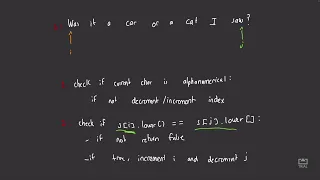 Was it a car or a cat I saw?
check if current char is alphanumerical:
if not decrement/increment index
check if s[i].lower() == s[j].lower():
- if not return false
- if true, increment i and decrement j